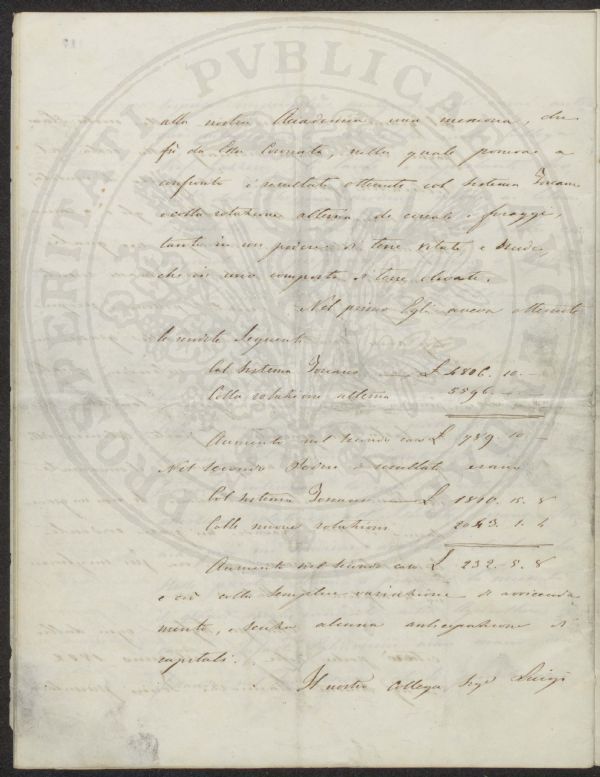 alla nostra Accademia una memoria, che
fù da Essa Coronata, nella quale poneva a
confronto i resultati ottenuti col sistema Toscano
e colla rotazione alterna di cereali e foraggi,
tanto in un podere di terre vitate, e
che in uno composto di terre elevate.
Nel primo Egli aveva ottenuto
le rendite Seguenti
Col Sistema Toscano £ 4806. 10. —
Colla rotazione alterna 5596. —
Aumento nel secondo caso £ 789. 10 —
Nel secondo Podere i resultati erano
Col sistema Toscano £. 1810. 15. 8
Colle nuove rotazioni 2043. 1. 4
Aumento nel secondo caso £ 232. 5. 8
e ciò colla semplice variazione di avvicenda
mento, e senza alcuna anticipazione di
capitali.
Il nostro Collega Sigr Luigi
PROSPERITATI PVBLICAE AVGENDAE